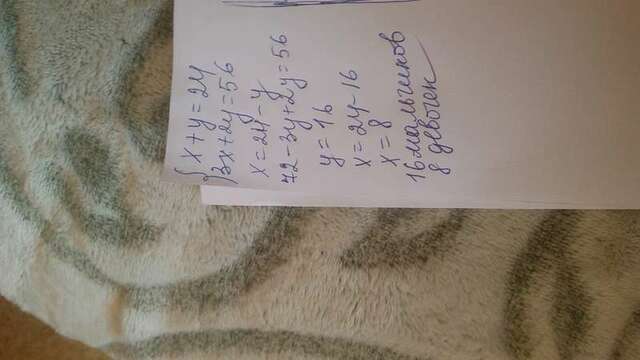 { x+y=24
3x+2y=56
x=24-y
72-3y+2y=56
y=16
x=24-16
x=8
16 мальчиков
8 девочек